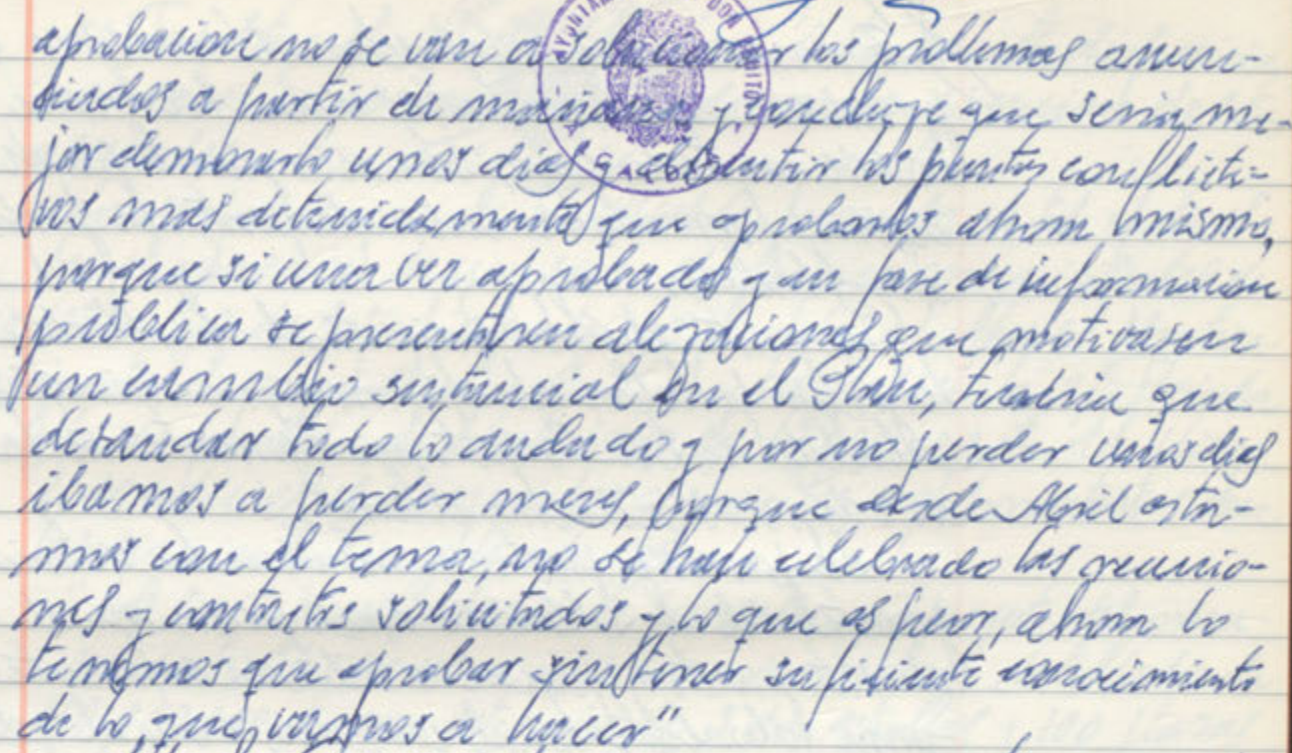 aprobacion no se van a solucionar los problemas anun-
ciados a partir de mañana y concluye que seria me-
jor demorarlo unos dias y discutir los puntos conflicti-
vos mas detenidamente que aprobarlos ahora mismo,
porque si una vez aprobado y en fase de informacion
publica se presentasen alegaciones que motivasen
un cambio sustancial en el Plan, tendria que
desandar todo lo andado y por no perder unos dias
ibamos a perder meses, porque desde Abril esta-
mos con el tema, no se han celebrado las reunio-
nes y contactos solicitados y lo que es peor, ahora lo
tenemos que aprobar sin tener suficiente conocimiento
de lo que vamos a hacer"